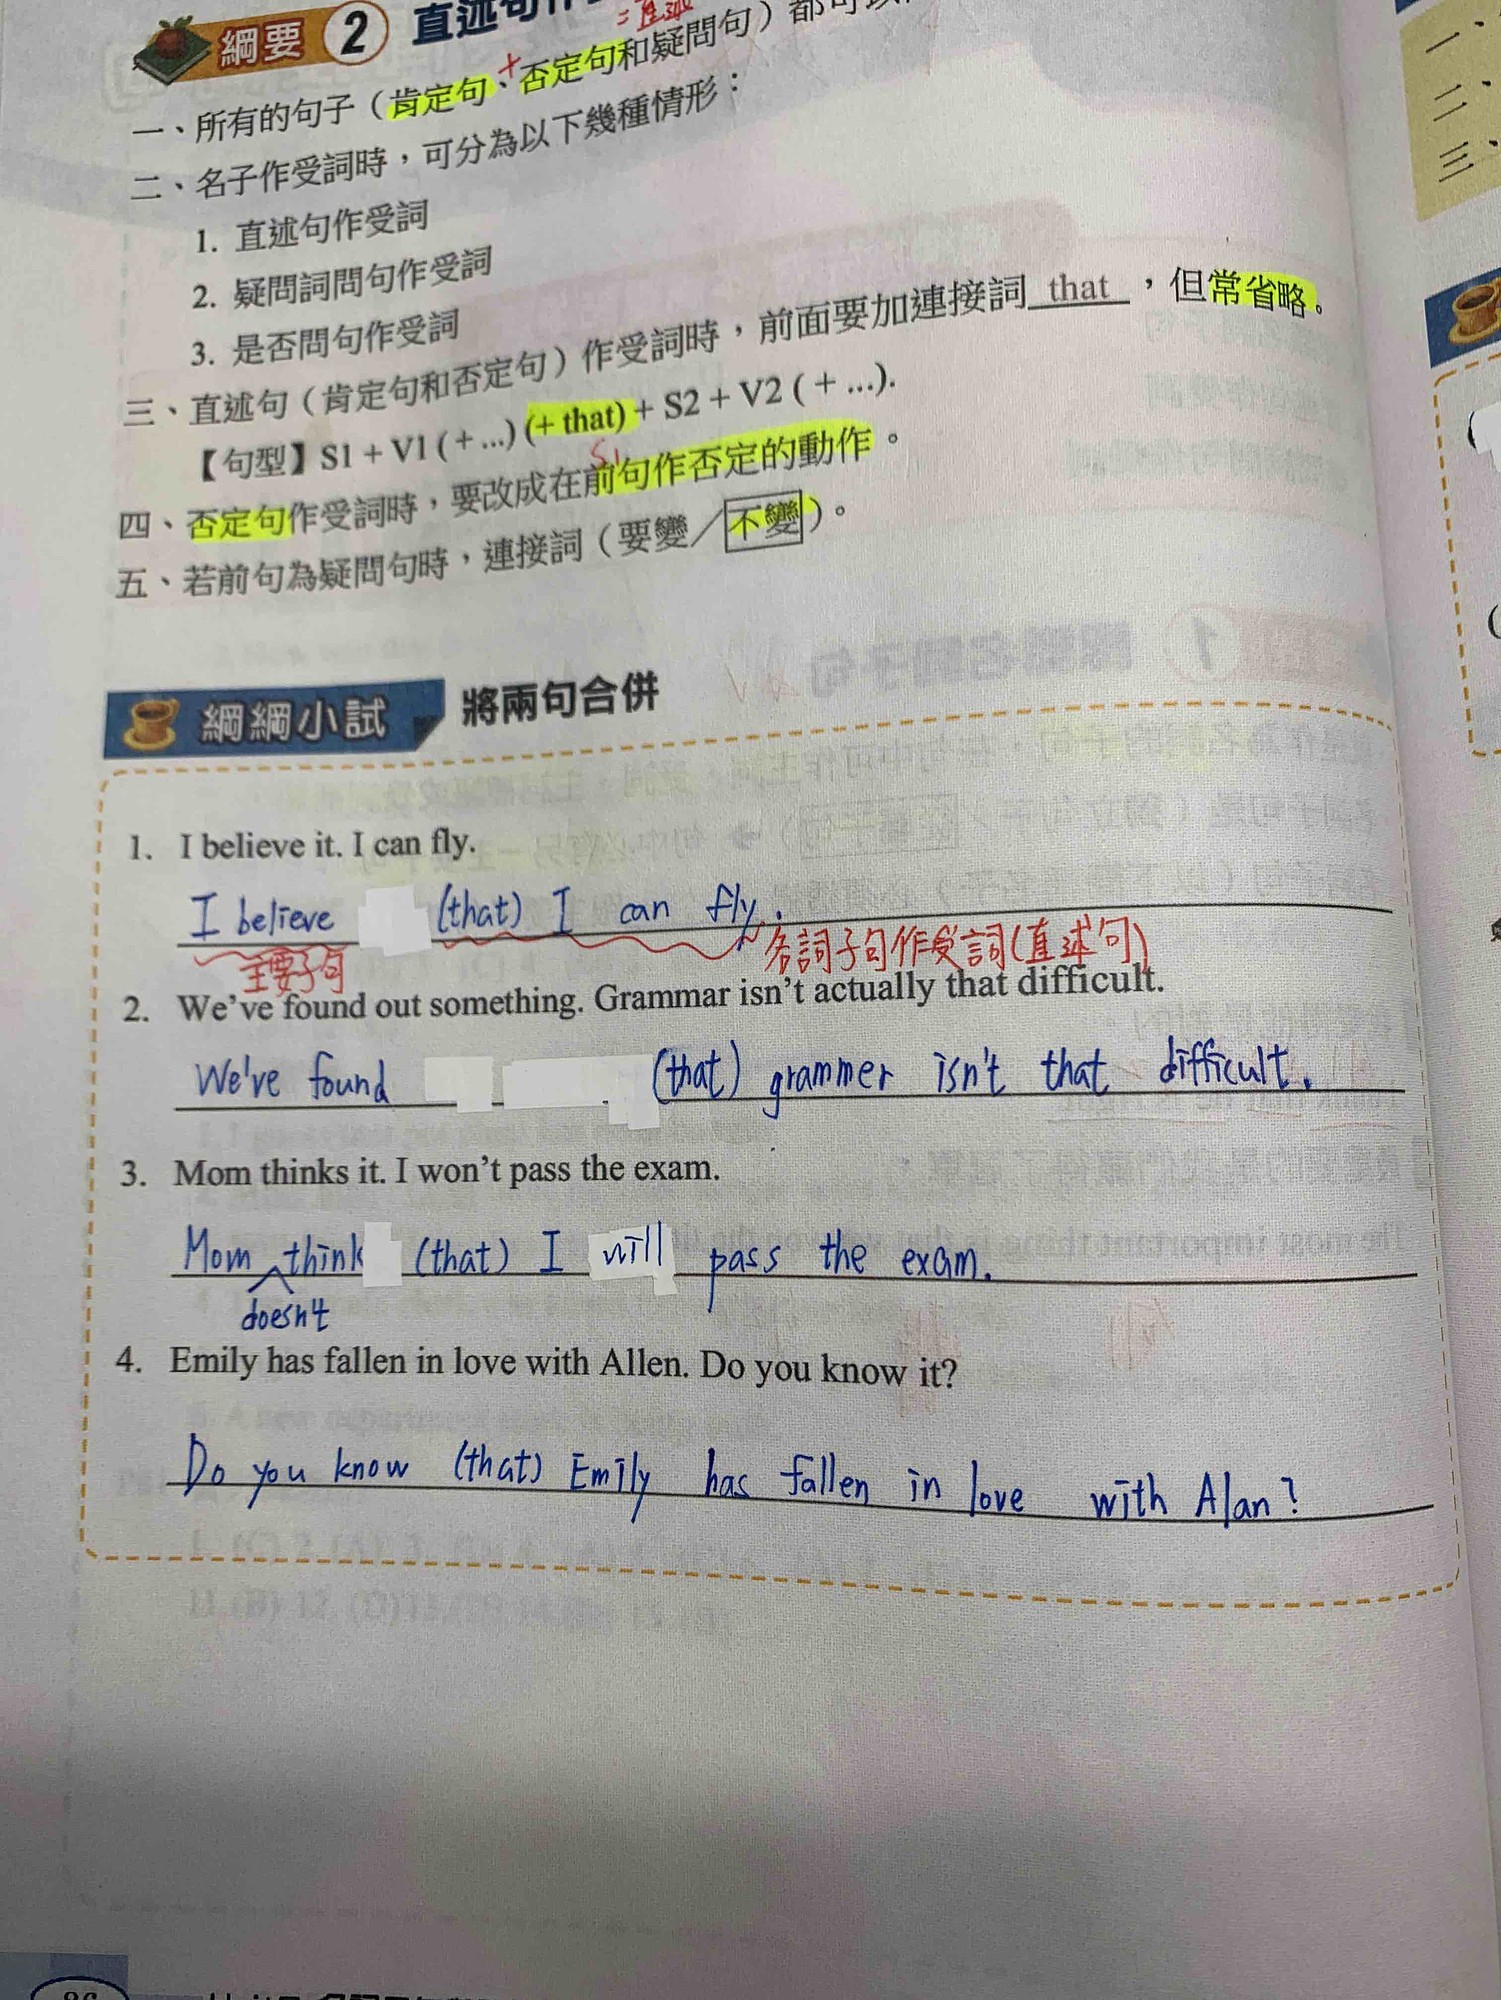 綱要 2 直述句作
=直述
一、所有的句子（肯定句、否定句和疑問句）都可以
+
二、名子作受詞時，可分為以下幾種情形：
1. 直述句作受詞
2. 疑問詞問句作受詞
3. 是否問句作受詞
三、直述句（肯定句和否定句）作受詞時，前面要加連接詞 that ，但常省略。
【句型】S1 + V1 ( + ...) (+ that) + S2 + V2 ( + ...).
S1
四、否定句作受詞時，要改成在前句作否定的動作。
五、若前句為疑問句時，連接詞（要變／不變）。
綱綱小試 將兩句合併
1. I believe it. I can fly.
I believe (that) I can fly.
主要子句 名詞子句作受詞(直述句)
2. We've found out something. Grammar isn't actually that difficult.
We've found (that) grammer isn't that difficult.
3. Mom thinks it. I won't pass the exam.
Mom think (that) I will pass the exam.
doesn't
4. Emily has fallen in love with Allen. Do you know it?
Do you know (that) Emily has fallen in love with Alan?
一、
二、
三、